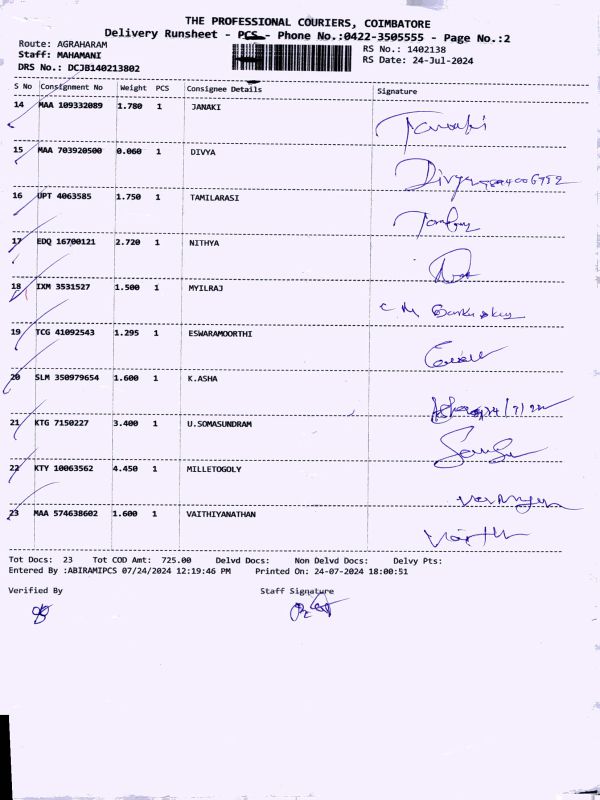 THE PROFESSIONAL COURIERS, COIMBATORE
Delivery Runsheet - PCS - Phone No.:0422-3505555 - Page No.:2
Route: AGRAHARAM RS No.: 1402138
Staff: MAHAMANI RS Date: 24-Jul-2024
DRS No.: DCJB140213802
S No Consignment No Weight PCS Consignee Details Signature
14 MAA 109332089 1.780 1 JANAKI
15 MAA 703920500 0.060 1 DIVYA Divya
16 UPT 4063585 1.750 1 TAMILARASI
17 EDQ 16700121 2.720 1 NITHYA
18 IXM 3531527 1.500 1 MYILRAJ
19 TCG 41092543 1.295 1 ESWARAMOORTHI
20 SLM 350979654 1.600 1 K.ASHA
21 KTG 7150227 3.400 1 U.SOMASUNDRAM
22 KTY 10063562 4.450 1 MILLETOGOLY
23 MAA 574638602 1.600 1 VAITHIYANATHAN
Tot Docs: 23 Tot COD Amt: 725.00 Delvd Docs: Non Delvd Docs: Delvy Pts:
Entered By :ABIRAMIPCS 07/24/2024 12:19:46 PM Printed On: 24-07-2024 18:00:51
Verified By Staff Signature